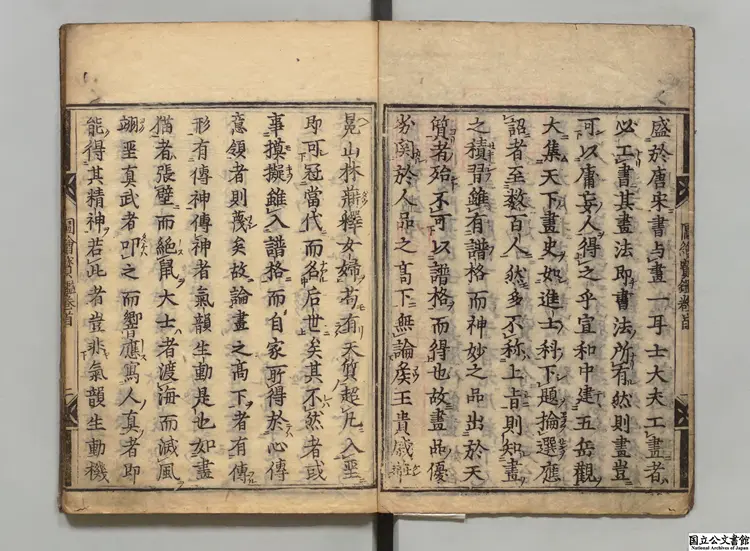 盛於唐宋書与畫一耳士大夫工畫者
必工書其畫法即書法所有然則畫豈
可以庸妄人得之乎宣和中建五岳觀
大集天下畫史如進士科下題掄選應
詔者至數百人然多不称上旨則知畫
之積習雖有譜格而神妙之品出於天
質者殆不可以譜格而得也故畫品優
劣関於人品之高下無論矦王貴戚
晃山林釋女婦苟有天質超凡入聖
即可冠當代而名后世矣其不然者或
事摸擬雖入譜格而自家所得於心傳
意領者則蔑矣故論畫之高下者有傳
形有傳神傳神者氣韻生動是也如畫
猫者張壁而絶鼠大士者渡海而滅風
翊聖真武者叩之而響應寫人真者即
能得其精神若此者豈非氣韻生動機
圖繪寳鑑卷首
圖繪寳鑑卷首
二
国立公文書館
National Archives of Japan